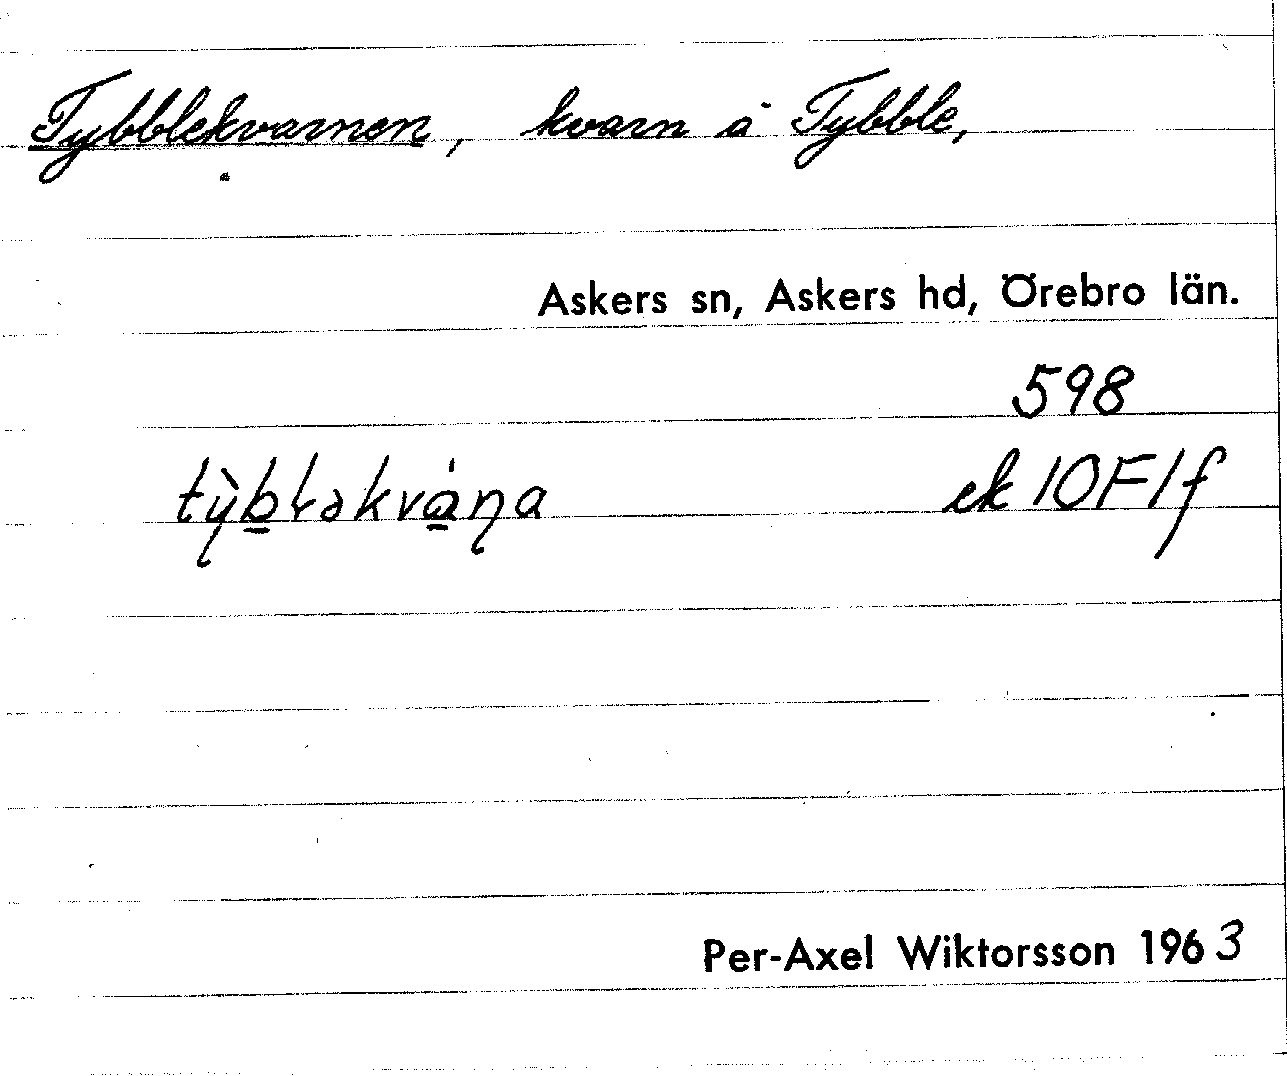 Tybblekvarnen, kvarn å Tybble,
Askers sn, Askers hd, Örebro län.
598
tỳb̲ləkvà̲ṇa ek 10F1f
Per-Axel Wiktorsson 1963